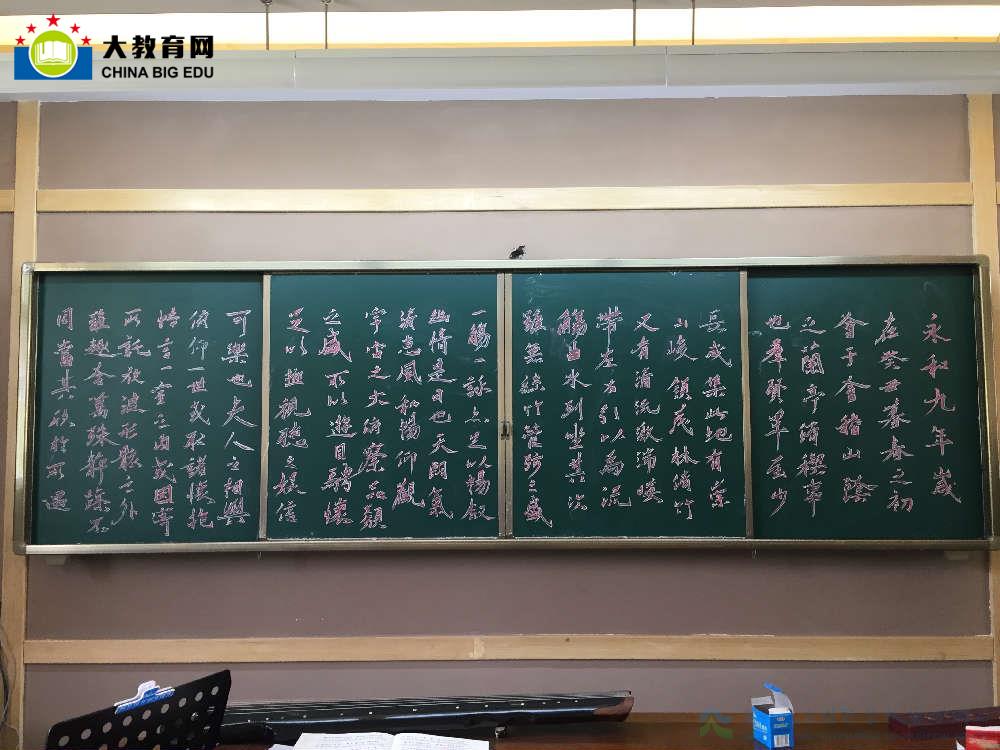 大教育网
CHINA BIG EDU
永和九年歲
在癸丑暮春之初
會于會稽山陰
之蘭亭脩禊事
也羣賢畢至少
長咸集此地有崇
山峻領茂林脩竹
又有清流激湍暎
帶左右引以為流
觴曲水列坐其次
雖無絲竹管弦之盛
一觴一詠亦足以暢敘
幽情是日也天朗氣
清惠風和暢仰觀
宇宙之大俯察品類
之盛所以遊目騁懷
足以極視聽之娛信
可樂也夫人之相與
俯仰一世或取諸懷抱
悟言一室之內或因寄
所託放浪形骸之外
雖趣舍萬殊靜躁不
同當其欣於所遇